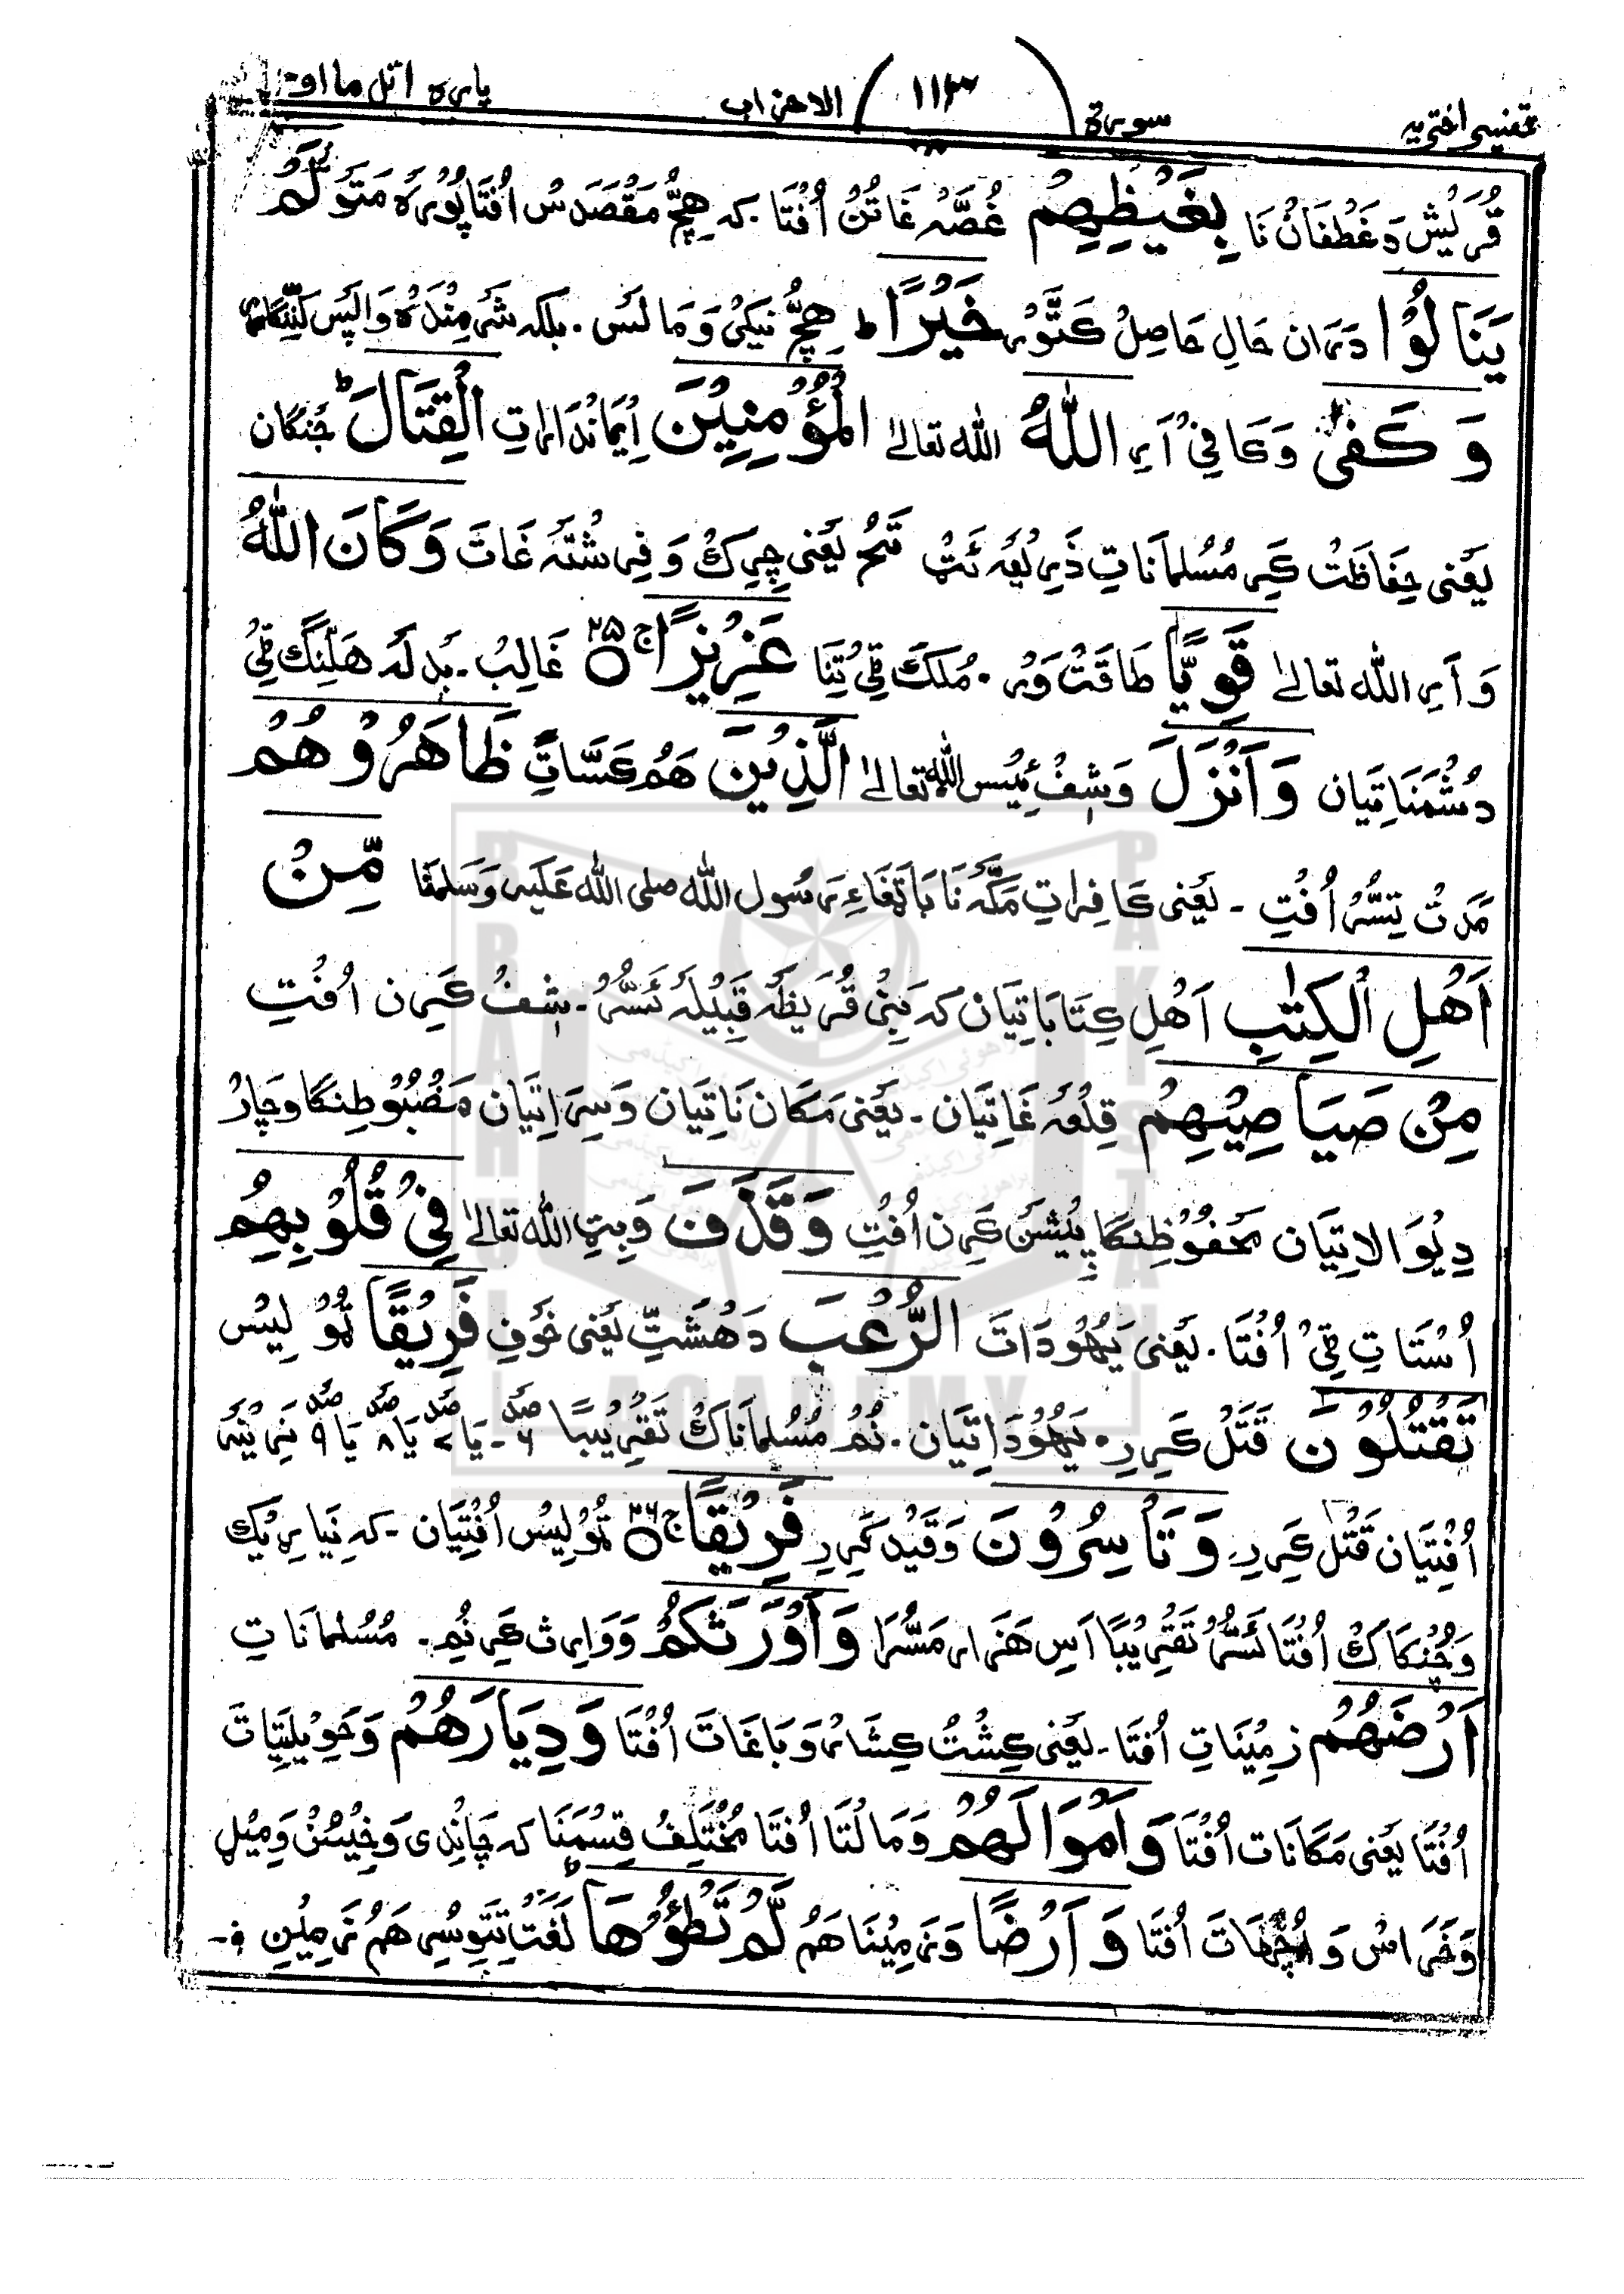 تفسیر اختریہ سورۃ ۱۱۳ الاحزاب پارہ اتل ما اوحی
قُرَیْش وَغَطْفَانْ نَا بِغَیْظِهِمْ غُصَّہ غَاتُنْ اُفْتَا. کہ هِچُّ مَقْصَدَس اُفْتَا پُورَہ مَتَوْ لَمْ
یَنَالُوْا دَرَان حَالِ حَاصِلْ کَتَّوْر خَیْرًا ط هِچُّ نیکیْ وَ مَالَس. بلکہ شَرمِنْدَہْ وَاپَس
وَ کَفَی وَکَافِیْ اَرِ اللّٰهُ اللہ تعالیٰ الْمُؤْمِنِیْنَ اِیْمَانْدَارَاتِ الْقِتَالَ ط جَنْگَان
یَعْنی حِفَاظَتْ کَرِ مُسْلمانَاتِ ذَرِیْعَہ ئَٹْ تَهْ یَعْنی چِرِکْ وَ فِرِشْتَہ غَاتَ وَکَانَ اللّٰهُ
وَ اَرِ اللہ تعالیٰ قَوِیًّا طَاقَتْ وَرْ. مُلک ٹِیْ تِنَا عَزِیْزًا ج ۲۵ غَالِبْ. بَدلَہ هَلِّنِگ ٹِیْ
دُشْمَنَاتِیَان وَاَنْزَلَ وَشِفْ اللہ تعالیٰ الَّذِیْنَ هَمُ کَسَّاتِ ظَاهَرُوْهُمْ
مَدَتْ تِسُّر اُفْتِ ۔ یَعْنی کَافِرَاتِ مَکَّہ نَا رَسُول اللہ صلی اللہ عَلَیہ وَسَلَّمْنَا مِّنْ
اَهْلِ الْکِتٰبِ اَهْلِ کِتَابَاتِیَان کہ بَنِیْ قُرَیظَہ قَبِیْلَہ ئَسُّر۔ شِفْ کَرِن اُفْتِ
مِنْ صَیَاصِیْهِمْ قِلْعَہ غَاتِیَان۔ یَعْنی مَکَان نَاتِیَان وَسَرَاتِیَان مَضْبُوْطِنْگا وَچَارْ
دِیْوَالاتِیَان مَحْفُوْظِنْگا پِیْشَنْ کَرِن اُفْتِ وَقَذَفَ وَبِٹِ اللہ تعالیٰ فِیْ قُلُوْبِهِمُ
اُسْتَاتِ ٹِیْ اُفْتَا. یَعْنی یَهُوْدَاتَ الرُّعْبَ دَهْشَتِّ یَعْنی خَوْفِ فَرِیْقًا ٹُوْلِیْس
تَقْتُلُوْنَ قَتَلْ کَرِرِ. یَهُوْدَاتِیَان. نُمْ مُسْلمانَاکْ تَقْرِیْبًا ۶ صد۔ یا ۷ صد یا ۸ صد یا ۹ صد نَرِیْنَہ
اُفْتِیَان قَتْل کَرِرِ وَتَاْسِرُوْنَ وَقَیْد کَرِرِ فَرِیْقًا ج ۲۶ ٹُوْلِیْس اُفْتِیَان ۔ کہ نِیَارِیْک
وَچُنْکَاکْ اُفْتَا ئَسُّرْ تَقْرِیْبًا اَسِ هَزَار مَسُّرَا وَاَوْرَثَکُمْ وَوَارِث کَرِ نُم۔ مُسْلمانَاتِ
اَرْضَهُمْ زَمِیْنَاتِ اُفْتَا۔ یَعْنی کِشْتُ کِشَار وَبَاغَاتَ اُفْتَا وَدِیَارَهُمْ وَحَوِیْلِیَّاتَ
اُفْتَا یَعْنی مَکَانَات اُفْتَا وَاَمْوَالَهُمْ وَمَالتَا اُفْتَا مُخْتَلِفْ قِسْمَنَا کہ چَانْدی وَخِیْسُنْ وَمِیْلِ
وَخَرَاسْ وَ اُفْتَا وَ اَرْضًا وَزَمِیْنَا هَمُ لَّمْ تَطَئُوْهَا ط لَغَتْ تِتَوْسُرِ هَمُ زَمِیْنِ